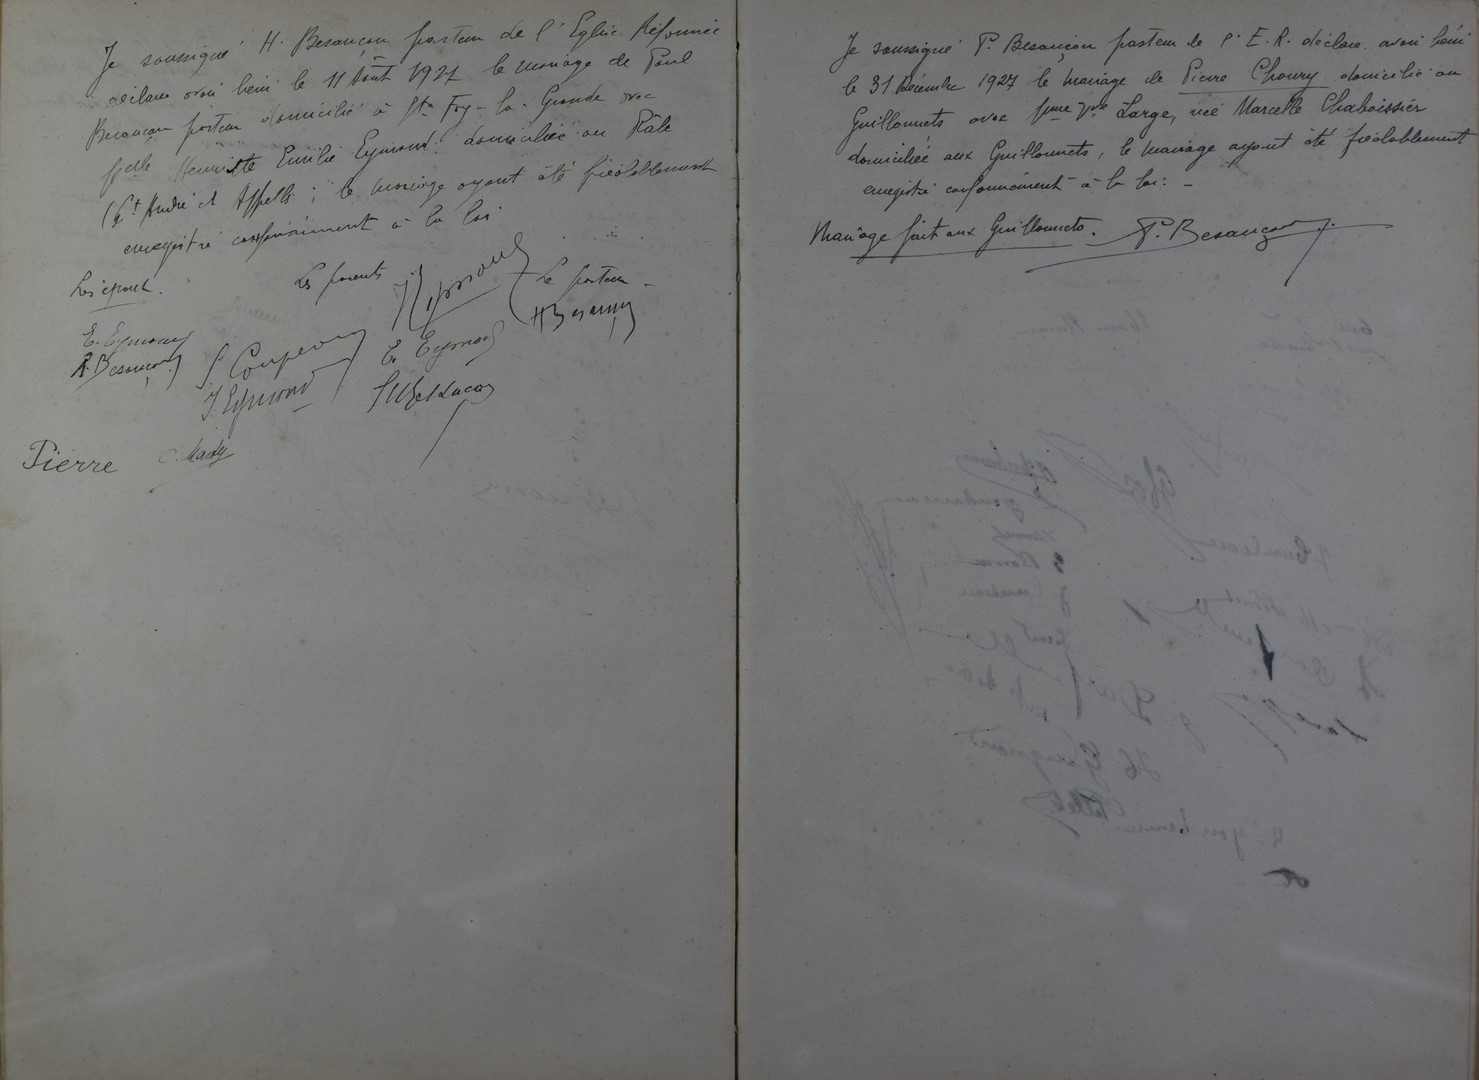 Je soussigné H. Besançon pasteur de l'Eglise Réformée
déclare avoir béni le 11 Août 1927 le mariage de Paul
Besançon pasteur domicilié à Ste Foy-la-Grande avec
Melle Henriette Emilie Eymond domiciliée au Râle
(St André et Appelles ; le mariage ayant été préalablement
enregistré conformément à la loi
Les époux.
Les parents
Le pasteur -
E. Eymond
P. Besançon
Eymond
H Besançon
E. Eymond
J Eymond
Pierre
Je soussigné P. Besançon pasteur de l'E.R. déclare avoir béni
le 31 Décembre 1927 le mariage de Pierre Choury domicilié au
Guillonnets avec Mme Vve Large, née Marcelle Chaboissier
domiciliée aux Guillonnets, le mariage ayant été préalablement
enregistré conformément à la loi. -
Mariage fait aux Guillonnets. P. Besançon